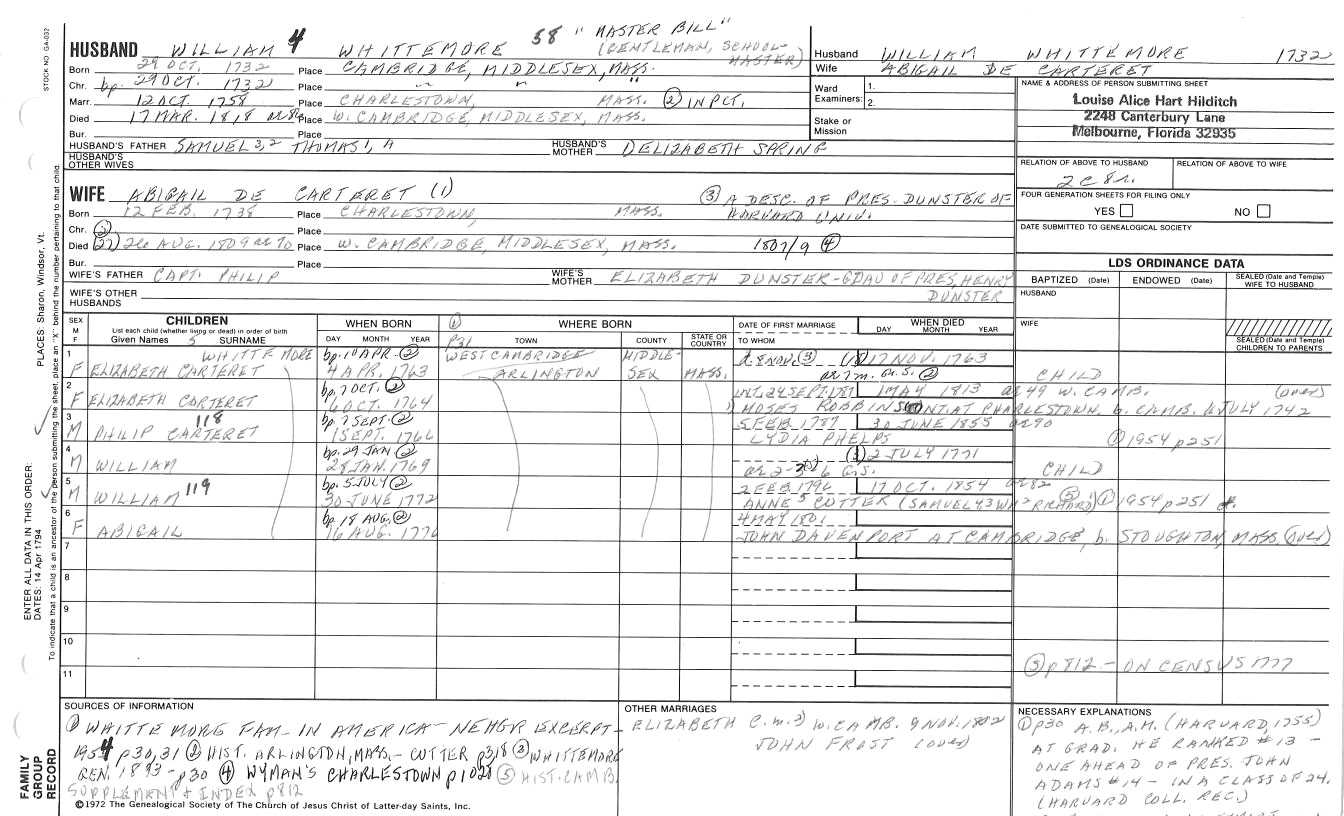 STOCK NO. GA-032
HUSBAND WILLIAM 4 WHITTEMORE 58 "MASTER BILL"
(GENTLEMAN, SCHOOL-MASTER)
Born 29 OCT. 1732 Place CAMBRIDGE, MIDDLESEX, MASS.
Chr. bp. 29 OCT. 1732 Place " " "
Marr. 12 OCT. 1758 Place CHARLESTOWN, MASS. ② IN PCT.
Died 17 MAR. 1818 ae 86 Place W. CAMBRIDGE, MIDDLESEX, MASS.
Bur. Place
HUSBAND'S FATHER SAMUEL 3,2 THOMAS 1, A HUSBAND'S MOTHER DELIZABETH SPRING
HUSBAND'S OTHER WIVES
WIFE ABIGAIL DE CARTERET (1) ③ A DESC. OF PRES. DUNSTER OF HARVARD UNIV.
Born 12 FEB. 1738 Place CHARLESTOWN, MASS.
Chr. ② Place
Died 26 AUG. 1809 ae 70 Place W. CAMBRIDGE, MIDDLESEX, MASS. 1807/9 ④
Bur. Place
WIFE'S FATHER CAPT. PHILIP WIFE'S MOTHER ELIZABETH DUNSTER-GDAU OF PRES, HENRY DUNSTER
WIFE'S OTHER HUSBANDS
Husband WILLIAM WHITTEMORE 1732
Wife ABIGAIL DE CARTERET
Ward Examiners: 1. 2.
Stake or Mission
NAME & ADDRESS OF PERSON SUBMITTING SHEET
Louise Alice Hart Hilditch
2248 Canterbury Lane
Melbourne, Florida 32935
RELATION OF ABOVE TO HUSBAND RELATION OF ABOVE TO WIFE
2C8R.
FOUR GENERATION SHEETS FOR FILING ONLY
YES NO
DATE SUBMITTED TO GENEALOGICAL SOCIETY
LDS ORDINANCE DATA
BAPTIZED (Date) ENDOWED (Date) SEALED (Date and Temple) WIFE TO HUSBAND
HUSBAND
WIFE
SEALED (Date and Temple) CHILDREN TO PARENTS
SEX M F CHILDREN List each child (whether living or dead) in order of birth Given Names 5 SURNAME
WHEN BORN DAY MONTH YEAR
① P31 WHERE BORN TOWN COUNTY STATE OR COUNTRY
DATE OF FIRST MARRIAGE TO WHOM WHEN DIED DAY MONTH YEAR
1 WHITTEMORE bp. 10 APR. ② WEST CAMBRIDGE MIDDLE- d. 8 NOV. ③ 17 NOV. 1763
F ELIZABETH CARTERET 4 APR. 1763 ARLINGTON SEX MASS. ae 7m. G.S. ② CHILD
2 bp. 7 OCT. ② INT. 24 SEPT. 1781 1 MAY 1813 ae 49 W. CAMB. (over)
F ELIZABETH CARTERET 6 OCT. 1764 1) MOSES ROBBINS INT. AT CHARLESTOWN, b. CAMB. 6 JULY 1742
3 118 bp. 7 SEPT. ② 5 FEB 1787 30 JUNE 1855 ae 90
M PHILIP CARTERET 1 SEPT. 1766 LYDIA PHELPS ① 1954 p251
4 bp. 29 JAN ② 2 JULY 1771
M WILLIAM 28 JAN. 1769 ae 2-3-6 G.S. CHILD
5 bp. 5 JULY ② 2 FEB 1796 17 OCT. 1854 ae 82
M WILLIAM 119 30 JUNE 1772 ANNE 5 CUTTER (SAMUEL 4,3 WM 2 RICHARD 1) ① 1954 p251
6 bp. 18 AUG. ② 4 MAY 1801
F ABIGAIL 16 AUG. 1776 JOHN DAVENPORT AT CAMBRIDGE, b. STOUGHTON, MASS. (over)
7
8
9
10
③ p812 - ON CENSUS 1777
11
SOURCES OF INFORMATION
① WHITTEMORE FAM- IN AMERICA- NEHGR EXCERPT-
1954 p30,31 ② HIST. ARLINGTON, MASS. - CUTTER p318 ③ WHITTEMORE
GEN. 1893 - p30 ④ WYMAN'S CHARLESTOWN p1021 ⑤ HIST. CAMB.
SUPPLEMENT & INDEX p812
©1972 The Genealogical Society of The Church of Jesus Christ of Latter-day Saints, Inc.
OTHER MARRIAGES
ELIZABETH C. m. 2) W. CAMB. 9 NOV. 1802
JOHN FROST (over)
NECESSARY EXPLANATIONS
① p30 A.B., A.M. (HARVARD, 1755)
AT GRAD. HE RANKED #13 -
ONE AHEAD OF PRES. JOHN
ADAMS #14 - IN A CLASS OF 24.
(HARVARD COLL. REC.)
ENTER ALL DATA IN THIS ORDER:
DATES: 14 Apr 1794 PLACES: Sharon, Windsor, Vt.
To indicate that a child is an ancestor of the person submitting the sheet, place an "X" behind the number pertaining to that child.
FAMILY GROUP RECORD